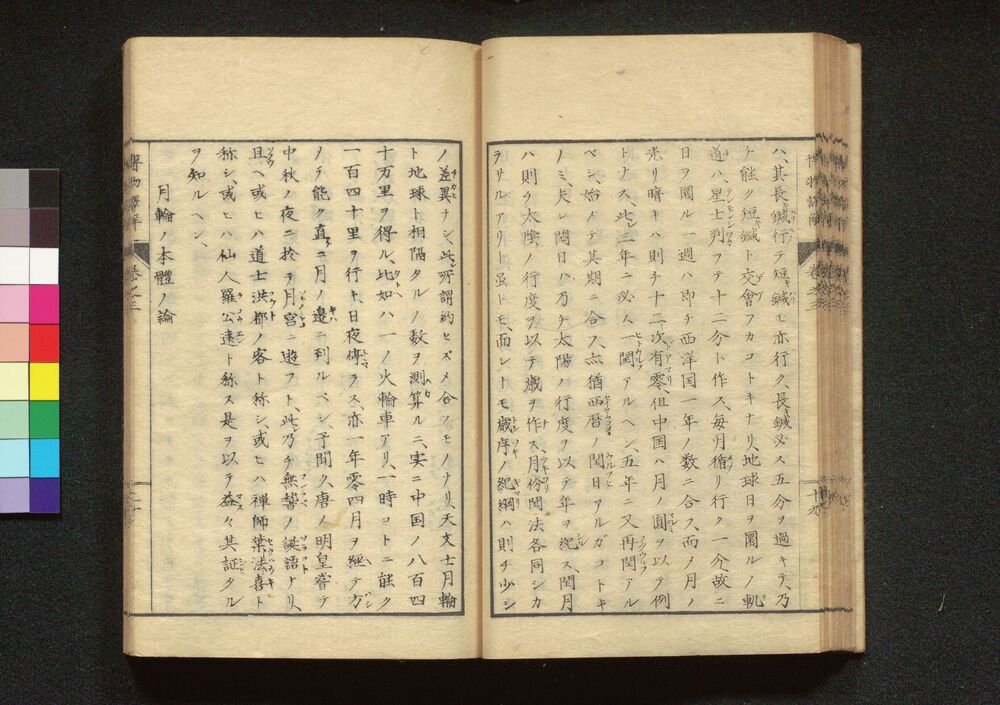 ハ、其長鍼行テ短鍼モ亦行ク、長鍼必ス五分ヲ過キテ、乃
チ能ク短鍼ト交會フカコトキナリ、地球日ヲ圜ルノ軌
道ハ、星士判ツテ十二分ト作ス、毎月循リ行ク一分、故ニ
日ヲ圜ル一週ハ即チ西洋国一年ノ数ニ合ス、而メ月ノ
光リ暗キハ則チ十二次有零但中国ハ月ノ圓ヲ以テ例
トナス、此レ三年ニ必ス一閏アルヘシ、五年ニ又再閏アル
ベシ、始メテ其期ニ合ス、亦猶西暦ノ閏日アルガコトキ
ノミ、夫レ閏日ハ乃チ太陽ノ行度ヲ以テ年ヲ紀ス、閏月
ハ則チ太陰ノ行度ヲ以テ歳ヲ作ス、月份閏法各同シカ
ラサルアリト虽トモ、而レトモ歳序ノ紀綱ハ則チ少シ
十九
ノ差異ナシ、此レ所謂約セズメ合フモノナリ、天文士月輪
ト地球ト相隔タルノ数ヲ測算ルニ、実ニ中国ノ八百四
十万里ヲ得ル、比如ハ一ノ火輪車アリ、一時コトニ能ク
一百四十里ヲ行キ、日夜停ラス、亦一年零四月ヲ經テ方
メテ能ク直ニ月ノ邉ニ到ルベシ、予聞ク唐ノ明皇嘗テ
中秋ノ夜ニ於テ月宮ニ遊フト、此レ乃チ無誓ノ誕語ナリ、
且ヘ或ヒハ道士洪都ノ客ト称シ、或ヒハ禅師葉法喜ト
称シ、或ヒハ仙人羅公遠ト称ス是ヲ以テ益々其証タル
ヲ知ルヘシ、
月輪ノ本體ノ論